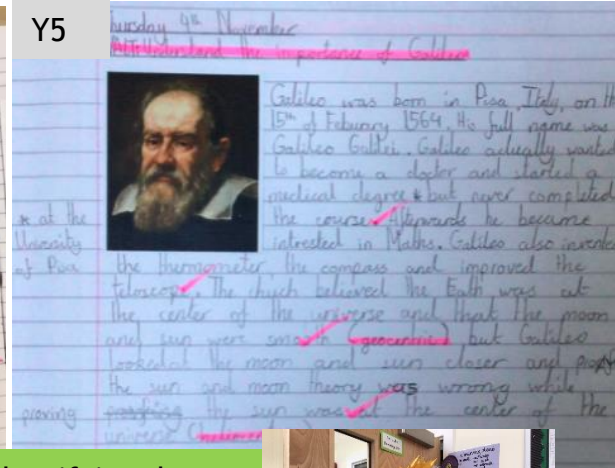 Y5
Thursday 4th November
Understand the importance of Galileo
Galileo was born in Pisa, Italy, on th
15th of Feburary 1564. His full name was
Galileo Galilei. Galileo actually wanted
to become a doctor and started a
medical degree * but never completed
* at the
University
of Pisa
the course. Afterwards he became
intrested in Maths. Galileo also invente
the thermometer, the compass and improved the
teloscope. The chuch believed the Eath was at
the center of the universe and that the moon
and sun were smooth (geocentric) but Galileo
looked at the moon and sun closer and
the sun and moon theory was wrong while
proving
the sun was at the center of the
universe